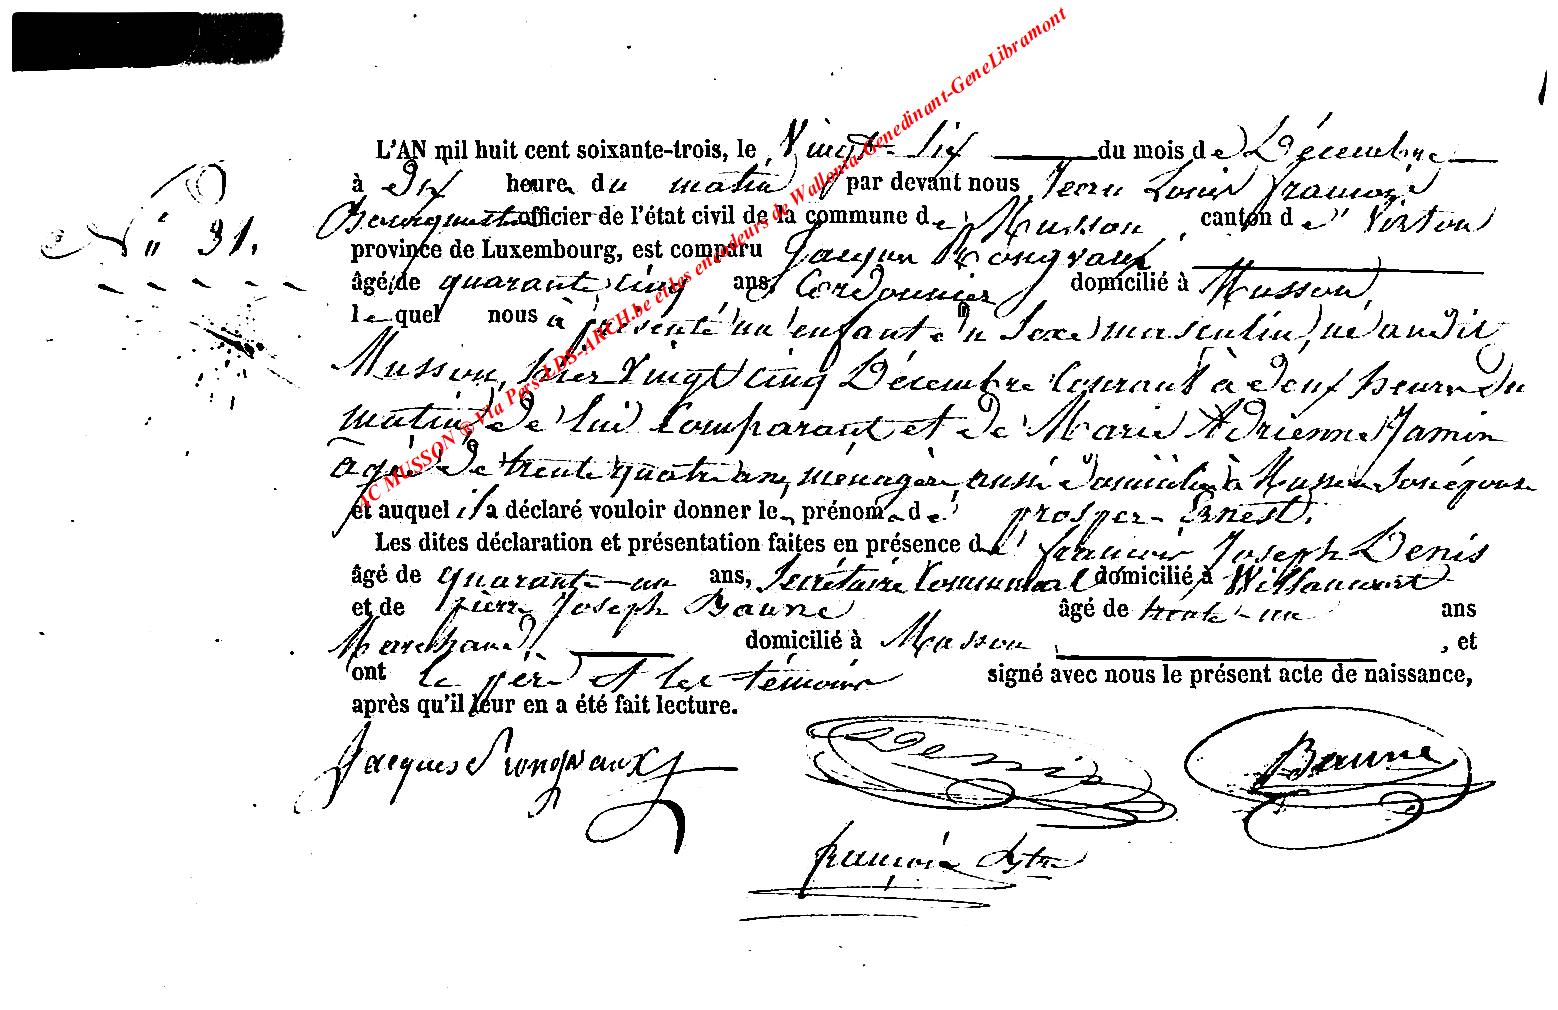 L'AN mil huit cent soixante-trois, le Vingt-Six du mois de Décembre
à Dix heures du matin par devant nous Jean Louis françois
officier de l'état civil de la commune de Musson canton de Virton
N° 31.
province de Luxembourg, est comparu Jacques Rongvaux
âgé de quarante cinq ans, Cordonnier domicilié à Musson,
lequel nous à présenté un enfant du Sexe masculin, né audit
Musson, hier Vingt cinq Décembre Courant à deux heures du
matin, de lui Comparant et de Marie Adrienne Jamin
agée de trente quatre ans, ménagère, aussi domiciliée à Musson Son épouse
et auquel il a déclaré vouloir donner les prénoms de prosper-Ernest.
Les dites déclaration et présentation faites en présence de françois Joseph Denis
âgé de quarante-un ans, Secrétaire Communal domicilié à Willancourt
et de pierre Joseph Baune âgé de trente-un ans
Marchand domicilié à Musson , et
ont le père et les témoins signé avec nous le présent acte de naissance,
après qu'il leur en a été fait lecture.
Jacques Rongvaux Denis Baune
françois
AC MUSSON @ Via Pers LDS-ARCH.be et les encodeurs de Wallonia-Genedinant-GeneLibramont